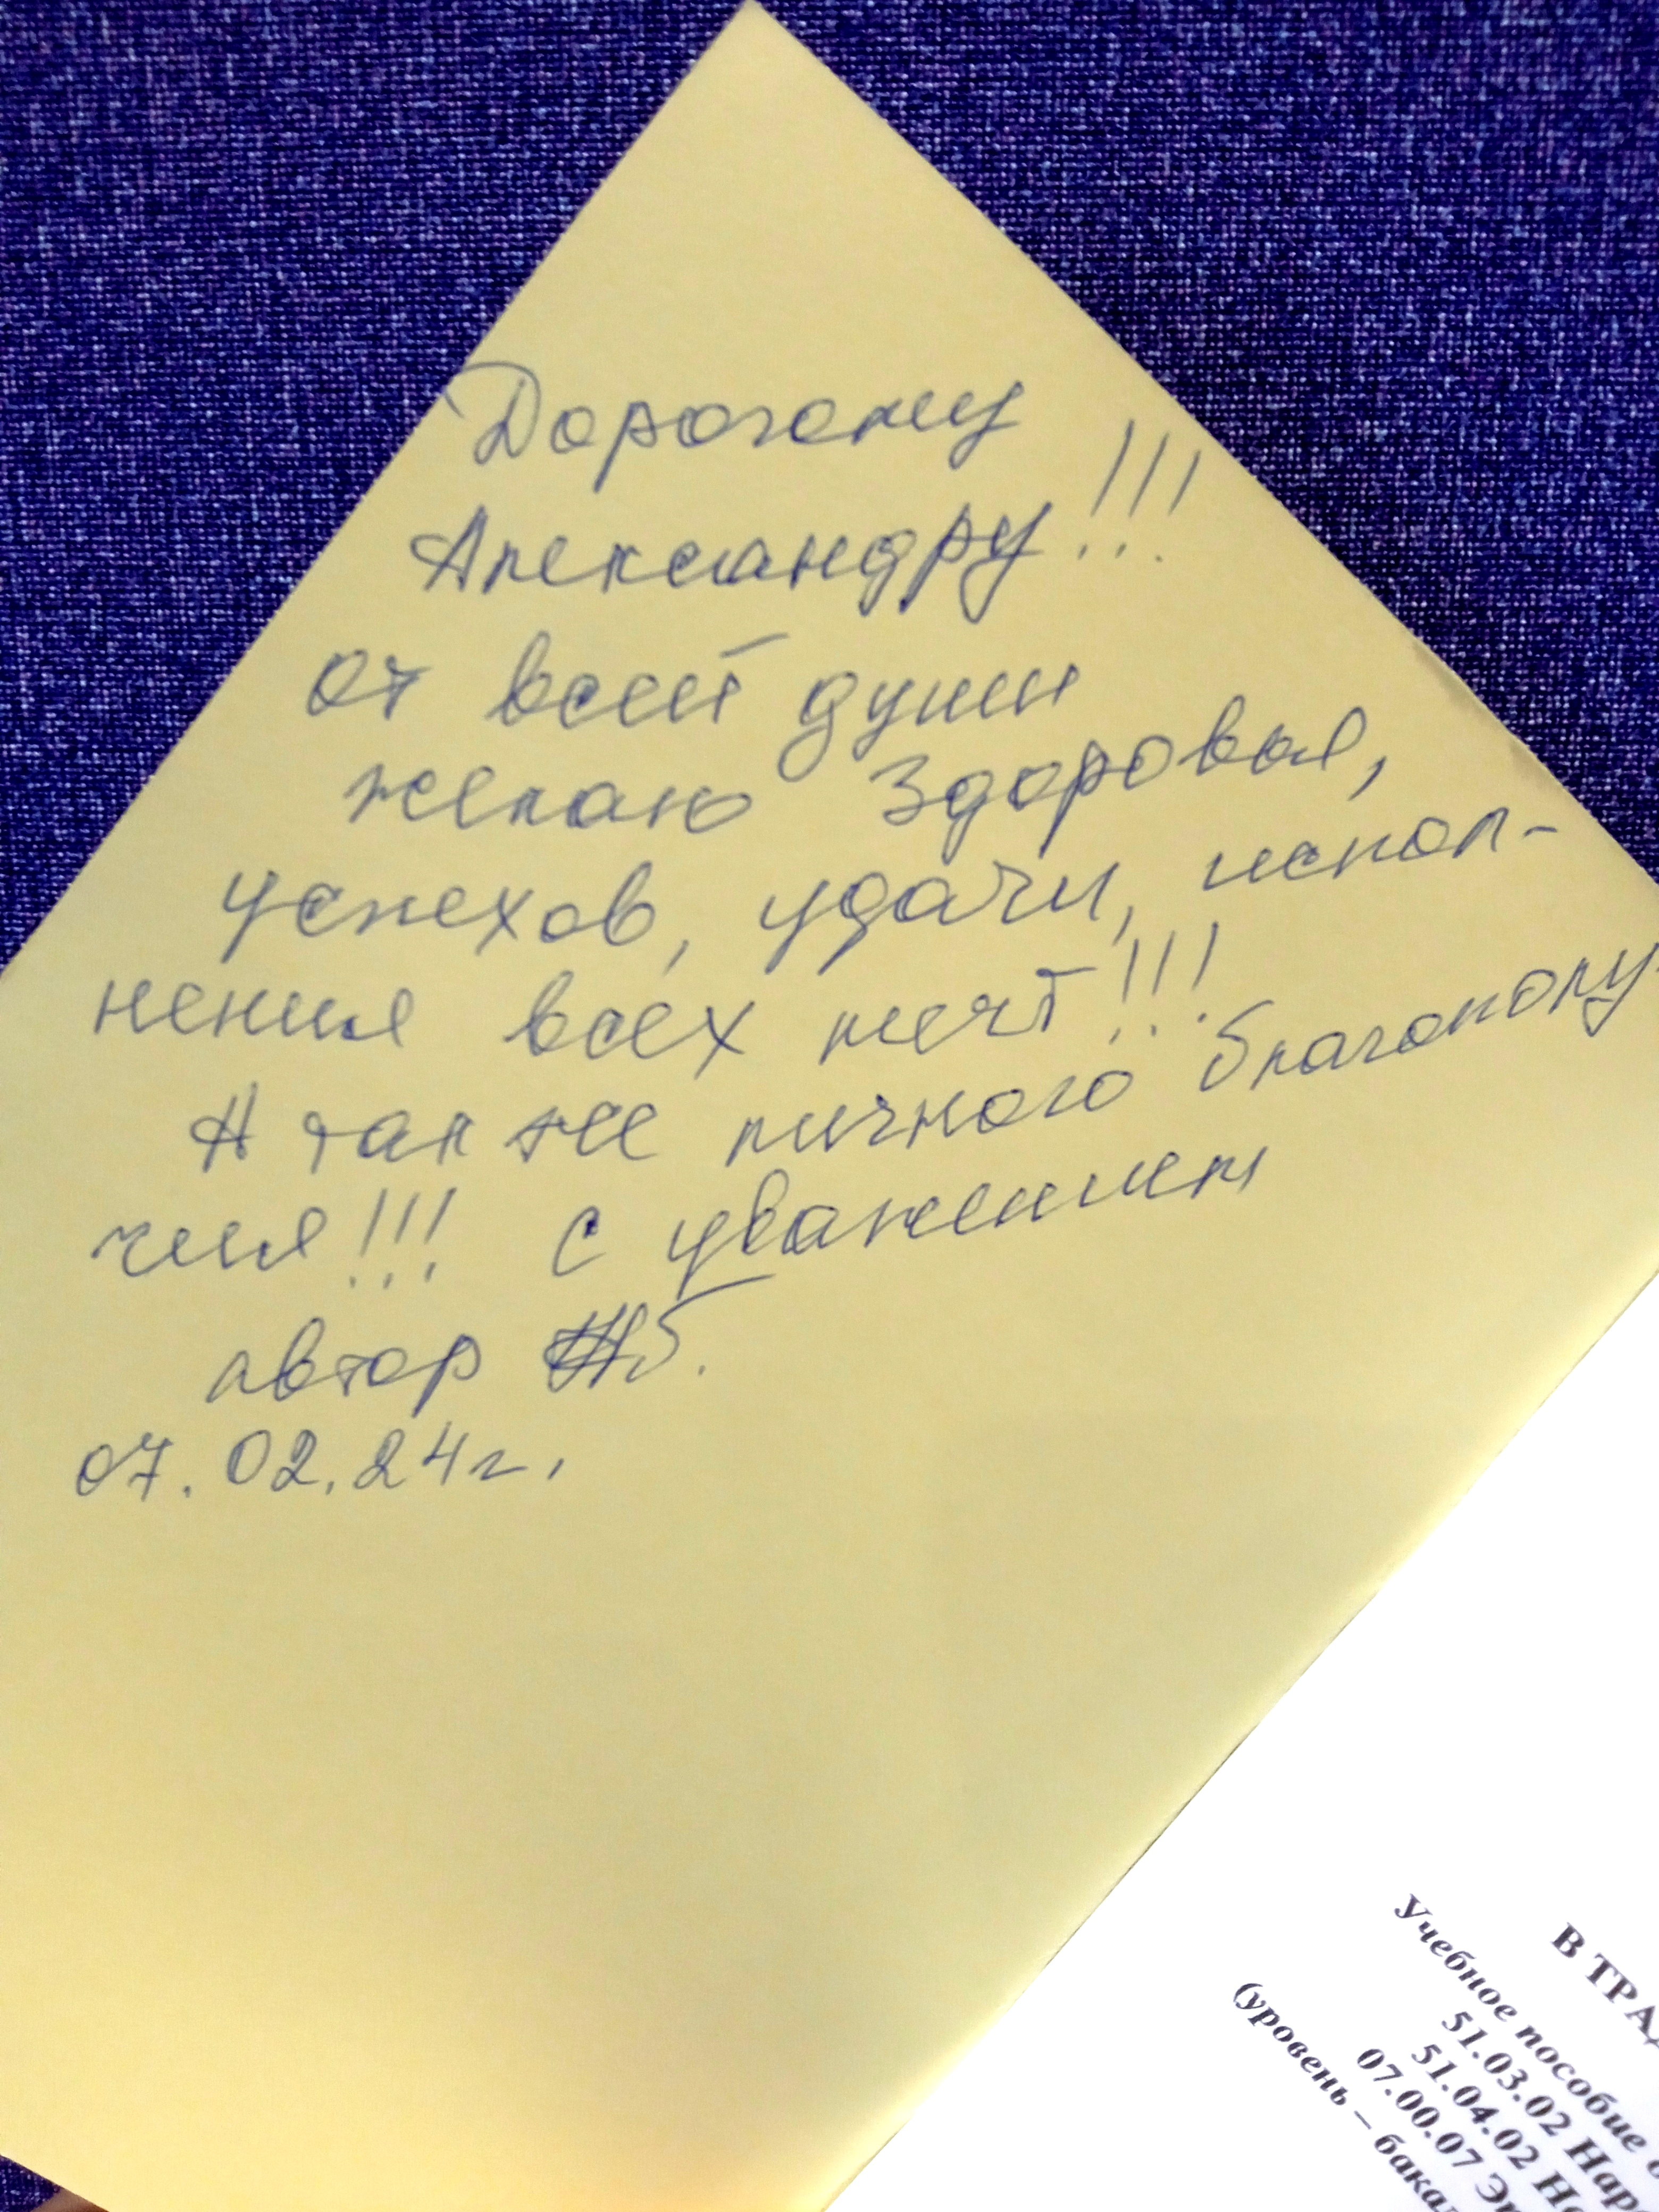 Дорогому
Александру!!!
от всей души
желаю здоровья,
успехов, удачи, испол-
нения всех мечт!!!
А так же личного благополу-
чия!!! с уважением
автор
07.02.24г.
В ТРАД
Учебное пособие
51.03.02 Наро
51.04.02 На
07.00.07 Эт
(уровень – бакал